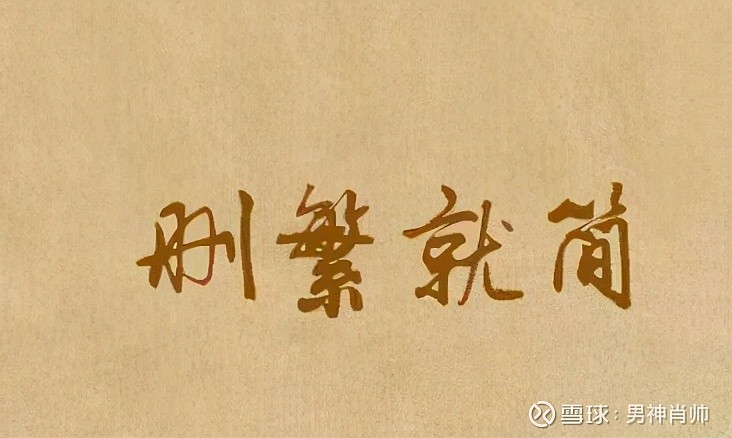 删繁就简
雪球:男神肖帅